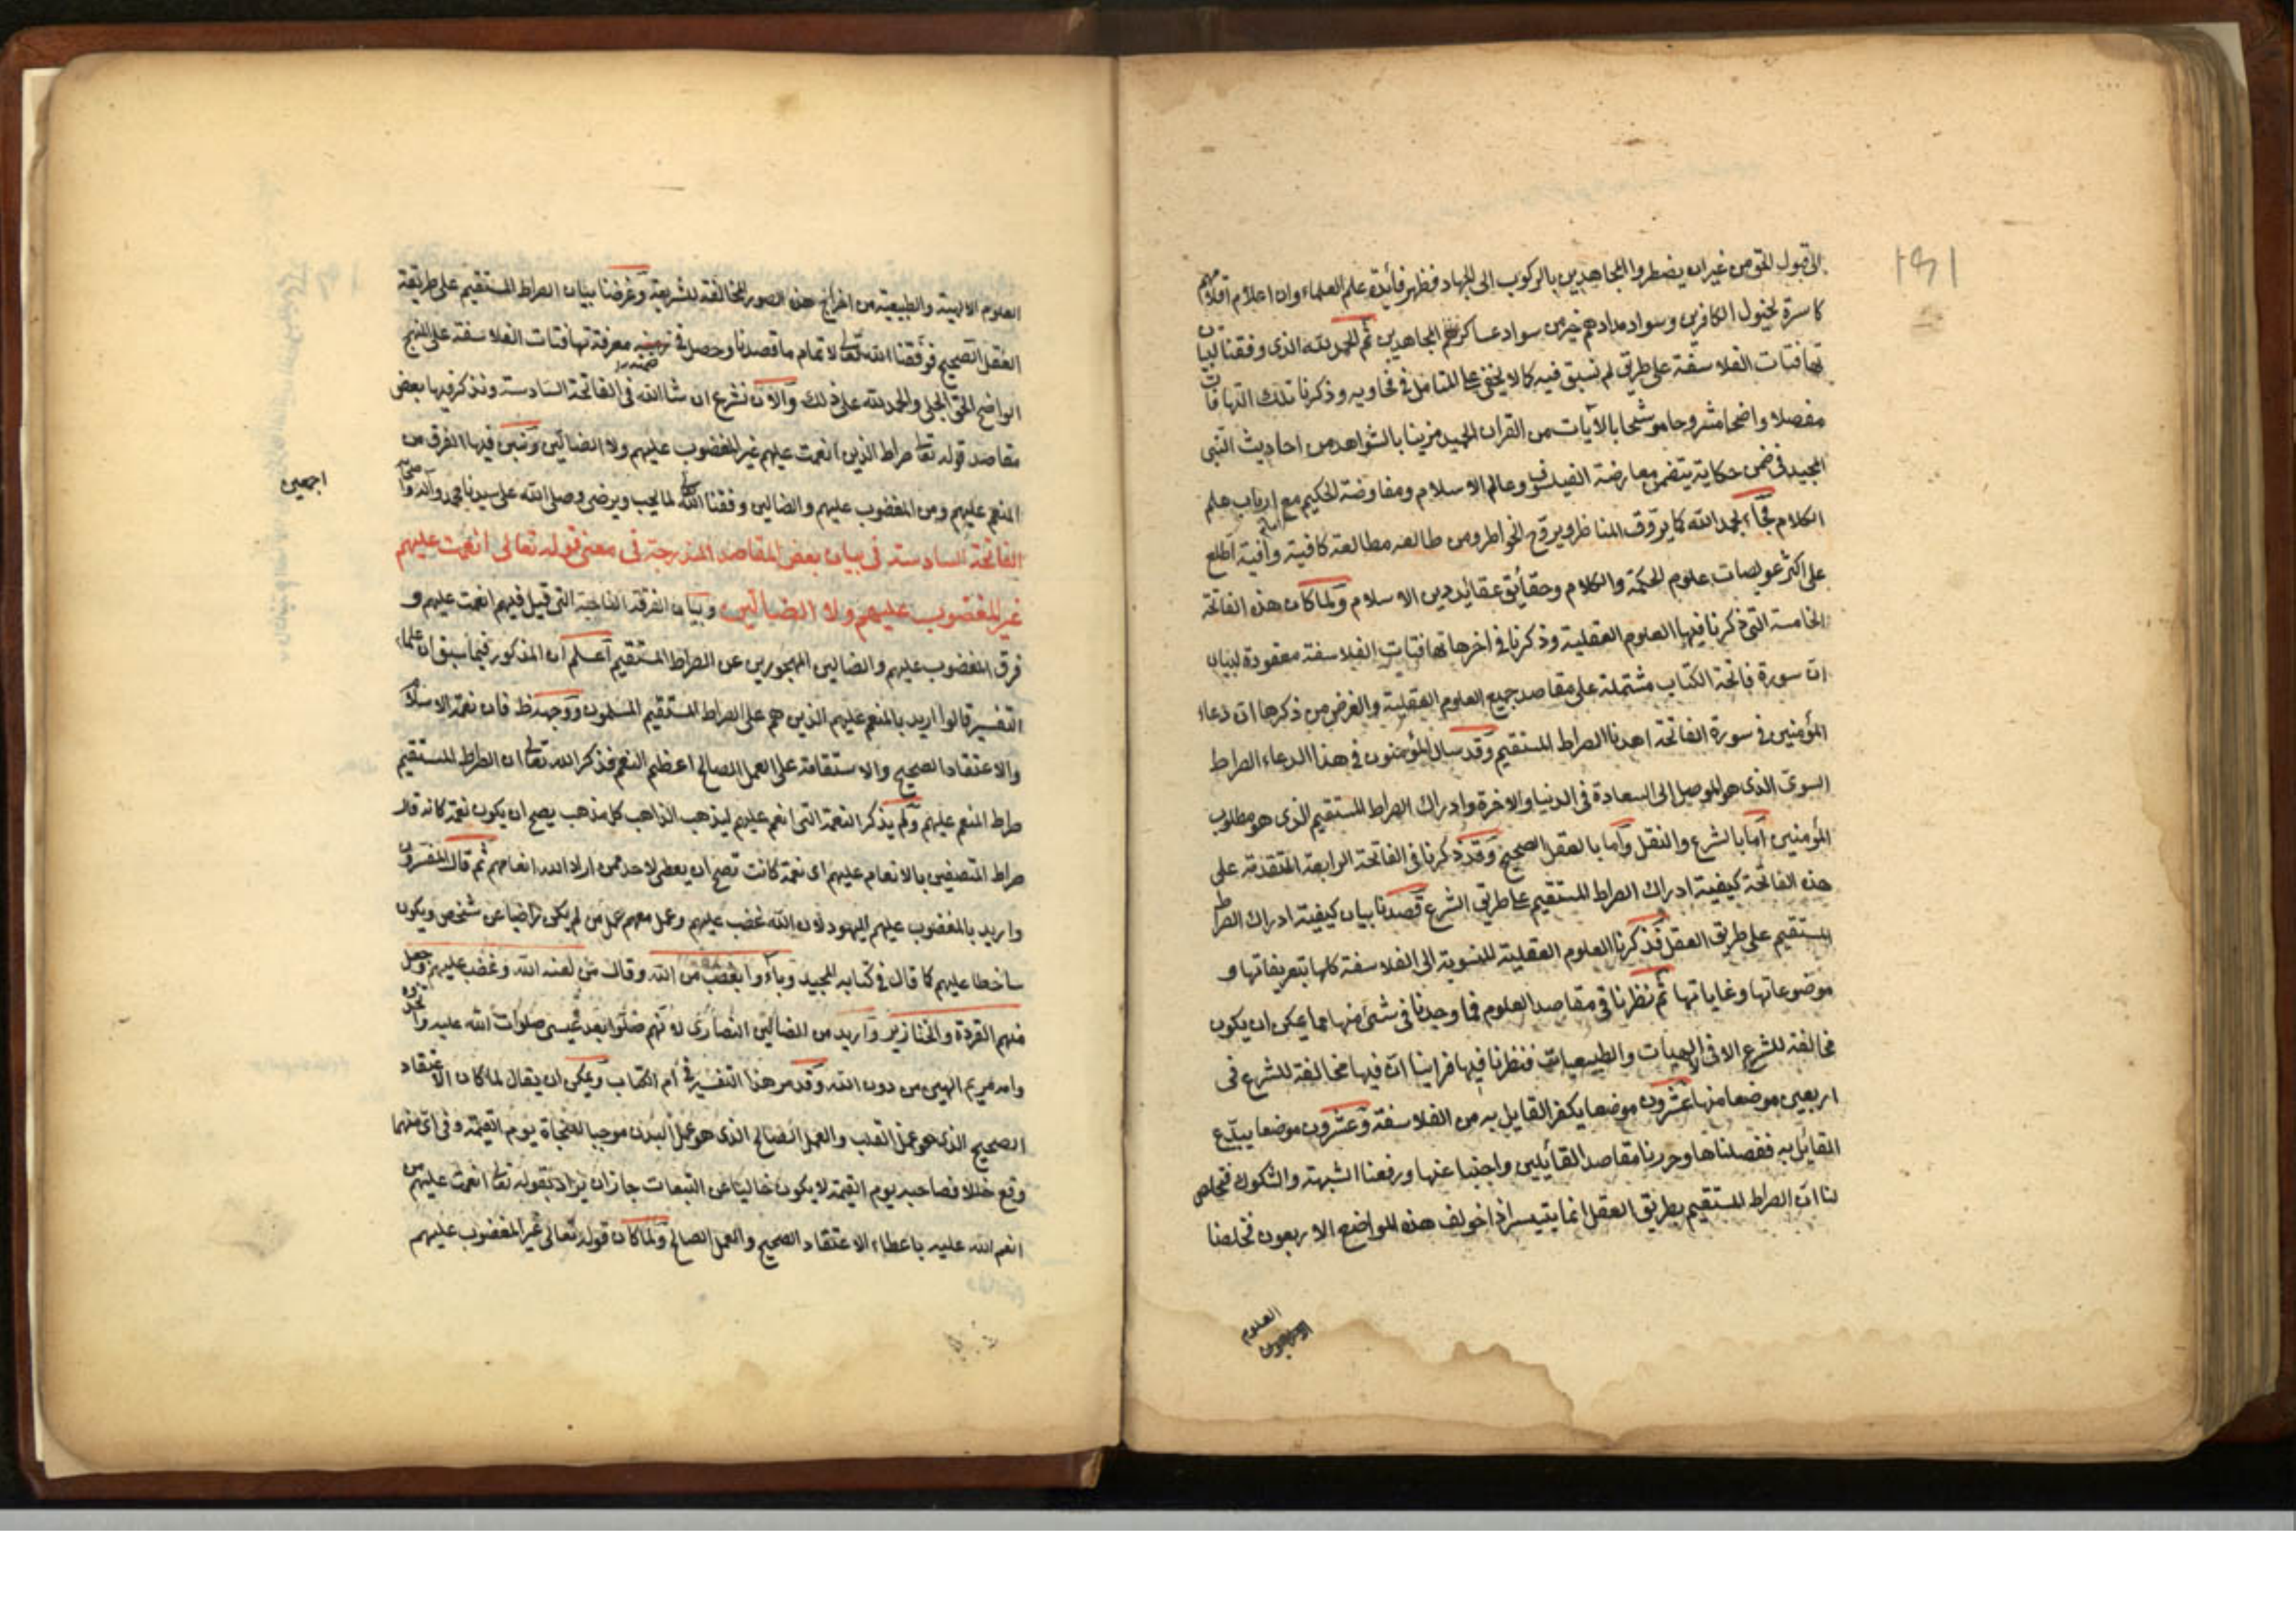 الى قبول الحق من غير ان يضطروا المجاهدين بالركوب الى الجهاد فظهر فائدة علم العلماء وان اعلام اقلامهم
كاسرة لخيول الكافرين وسواد مدادهم خير من سواد عساكرهم المجاهدين ثم الحمد لله الذى وفقنا لبيان
تهافتات الفلاسفة على طريق لم نسبق فيه كما لا يخفى على المتامل فى فحاويه وذكرنا تلك التهافتات
مفصلا واضحا مشروحا موشحا بالآيات من القران المجيد مزينا بالشواهد من احاديث النبى
المجيد فى ضمن حكاية يتضمن معارضة الفيلسوف وعالم الاسلام ومفاوضة الحكيم مع ارباب علم
الكلام فجاء بحمد الله كما يروق المناظر ويروح الخواطر ومن طالعه مطالعة كافية وافية اطلع
على اكثر عويصات علوم الحكمة والكلام وحقائق عقائد دين الاسلام ولما كان هذه الفاتحة
الخامسة التى ذكرنا فيها العلوم العقلية وذكرنا فى اخرها تهافتات الفلاسفة معقودة لبيان
ان سورة فاتحة الكتاب مشتملة على مقاصد جميع العلوم العقلية والغرض من ذكرها ان دعاء
المؤمنين فى سورة الفاتحة اهدنا الصراط المستقيم وقد سال المؤمنون فى هذا الدعاء الصراط
السوى الذى هو الموصل الى السعادة فى الدنيا والاخرة وادراك الصراط المستقيم الذى هو مطلوب
المؤمنين اما بالشرع والنقل واما بالعقل الصحيح وقد ذكرنا فى الفاتحة الرابعة المتقدمة على
هذه الفاتحة كيفية ادراك الصراط المستقيم على طريق الشرع قصدنا بيان كيفية ادراك الصراط
المستقيم على طريق العقل فذكرنا العلوم العقلية المنسوبة الى الفلاسفة كلها بتعريفاتها و
موضوعاتها وغاياتها ثم نظرنا فى مقاصد العلوم فما وجدنا فى شئ منها مما يمكن ان يكون
مخالفة للشرع الا فى الالهيات والطبيعيات فنظرنا فيها فراينا ان فيها مخالفة للشرع فى
اربعين موضعا منها عشرون موضعا يكفر القايل به من الفلاسفة وعشرون موضعا يبدع
القائل به ففصلناها وحررنا مقاصد القائلين واجبنا عنها ورفعنا الشبهة والشكوك فتخلص
لنا ان الصراط المستقيم بطريق العقل انما يتيسر اذا خولف هذه المواضع الاربعون فخلصنا
العلوم
العلوم الالهية والطبيعية من اخراج هذه الصور المخالفة للشريعة وغرضنا بيان الصراط المستقيم على طريقة
العقل الصحيح فوفقنا الله تعالى لاتمام ما قصدنا وحصل فى ضمنه معرفة تهافتات الفلاسفة على النهج
الواضح الحق الجلى والحمد لله على ذلك والآن نشرع ان شا الله فى الفاتحة السادسة ونذكر فيها بعض
مقاصد قوله تعالى صراط الذين انعمت عليهم غير المغضوب عليهم ولا الضالين ونبين فيها الفرق من
المنعم عليهم ومن المغضوب عليهم والضالين وفقنا الله لما يحب ويرضى وصلى الله على سيدنا محمد وآله وصحبه
اجمعين
الفاتحة السادسة فى بيان بعض المقاصد المندرجة فى معنى قوله تعالى انعمت عليهم
غير المغضوب عليهم ولا الضالين وبيان الفرقة الناجية التى قيل فيهم انعمت عليهم و
فرق المغضوب عليهم والضالين المهجورين عن الصراط المستقيم اعلم ان المذكور فيما سبق ان علماء
التفسير قالوا اريد بالمنعم عليهم الذين هم على الصراط المستقيم المسلمون ووجهه ظ فان نعمة الاسلام
والاعتقاد الصحيح والاستقامة على العمل الصالح اعظم النعم فذكر الله تعالى ان الصراط المستقيم
صراط المنعم عليهم ولم يذكر النعمة التى انعم عليهم ليذهب الذاهب كل مذهب يصح ان يكون نعمة كانه قال
صراط المتصفين بالانعام عليهم اى نعمة كانت تصح ان يعطى لاحد ممن اراد الله انعامهم ثم قال المفسرون
واريد بالمغضوب عليهم اليهود لان الله غضب عليهم وعمل معهم عمل من لم يكن راضيا عن شخص ويكون
ساخطا عليهم كما قال فى كتابه المجيد وباءوا بغضب من الله وقال من لعنه الله وغضب عليه وجعل
منهم القردة والخنازير واريد من الضالين النصارى لانهم ضلوا بعد عيسى صلوات الله عليه واتخذوه
وامه مريم الهين من دون الله وقد مر هذا التفسير فى ام الكتاب ويمكن ان يقال لما كان الاعتقاد
الصحيح الذى هو عمل القلب والعمل الصالح الذى هو عمل البدن موجبا للنجاة يوم القيمة وفى اى منهما
وقع خلل فصاحبه يوم القيمة لا يكون خاليا عن التبعات جاز ان يراد بقوله تعالى انعمت عليهم من
انعم الله عليه باعطاء الاعتقاد الصحيح والعمل الصالح ولما كان قوله تعالى غير المغضوب عليهم